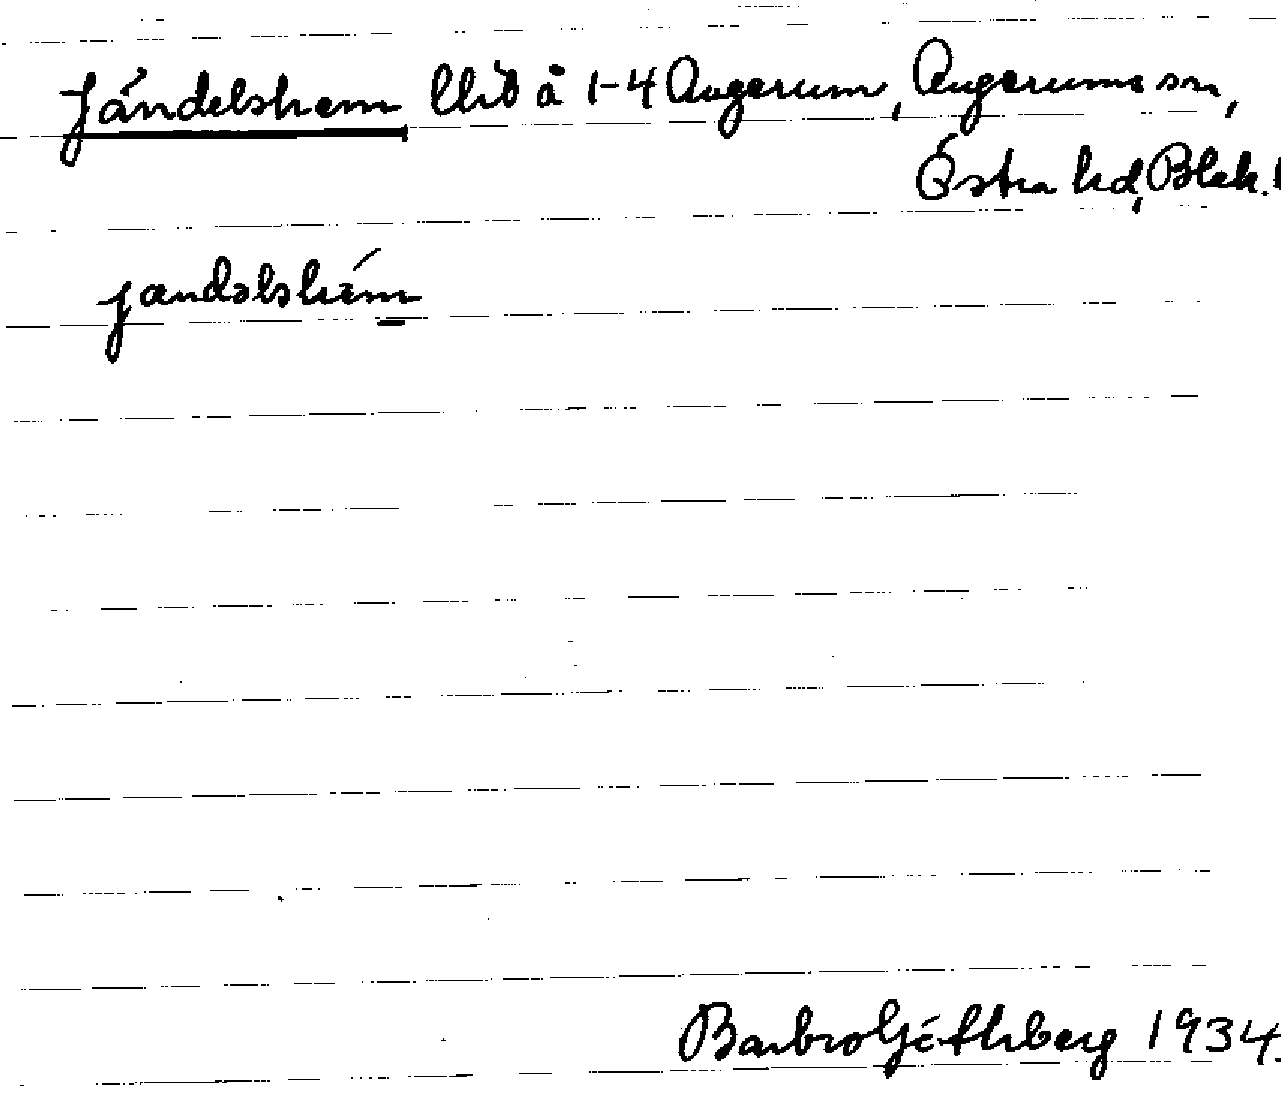 Jándelshem lhb å 1-4 Augerum, Augerums sn,
Östra hd, Blek. l
jandəlshém
Barbro Göthberg 1934.